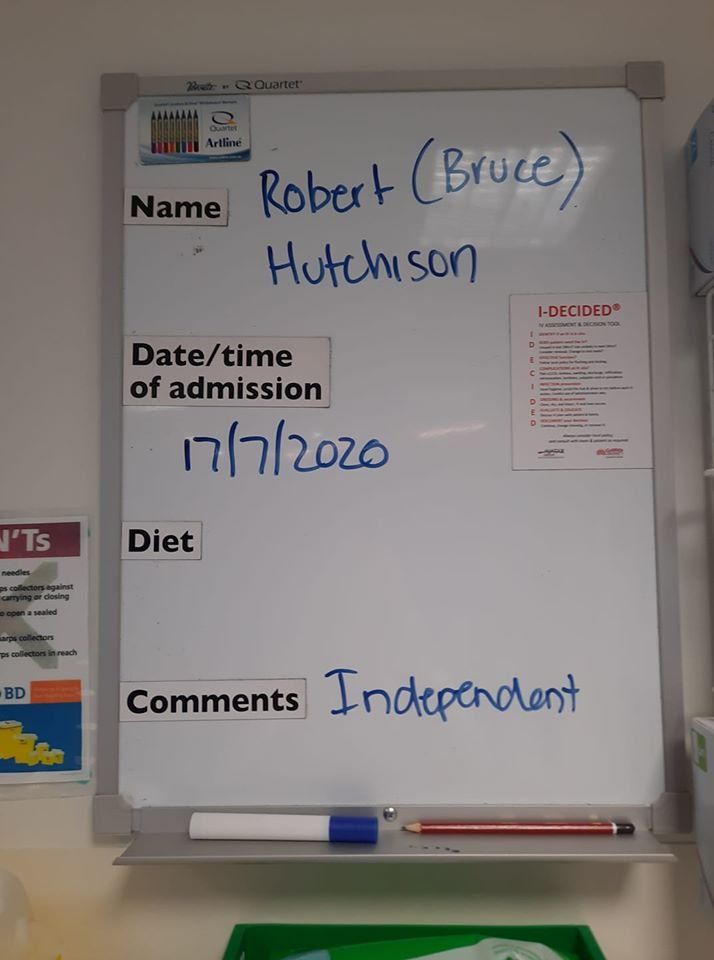 Penrite BY Quartet
Quartet
Artline
Name
Robert (Bruce)
Hutchison
I-DECIDED®
IV ASSESSMENT & DECISION TOOL
Date/time
of admission
17/7/2020
Diet
N'Ts
needles
ps collectors against
carrying or closing
o open a sealed
arps collectors
rps collectors in reach
BD
Comments
Independent